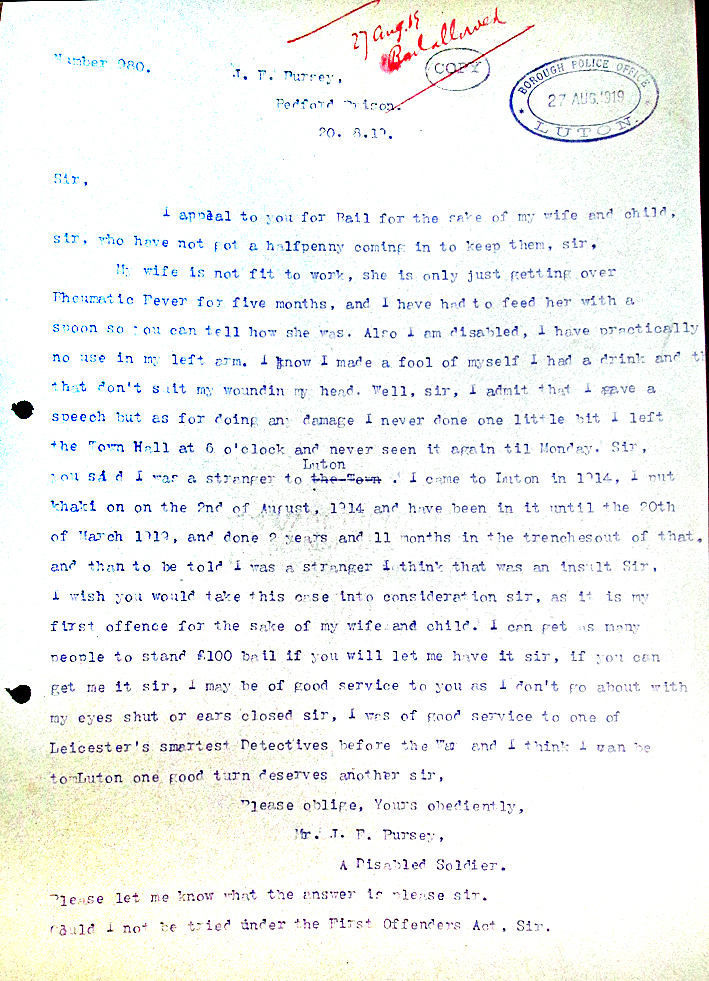 27 Aug. 19
Bail allowed
COPY
BOROUGH POLICE OFFICE
27 AUG. 1919
LUTON.
Number 980.
J. F. Pursey,
Bedford Prison.
20. 8.19.
Sir,
I appeal to you for Bail for the sake of my wife and child,
sir, who have not got a halfpenny coming in to keep them, sir,
My wife is not fit to work, she is only just getting over
Rheumatic Fever for five months, and I have had to feed her with a
spoon so you can tell how she was. Also I am disabled, I have practically
no use in my left arm. I know I made a fool of myself I had a drink and
that don't suit my woundin my head. Well, sir, I admit that I gave a
speech but as for doing any damage I never done one little bit I left
the Town Hall at 6 o'clock and never seen it again til Monday. Sir,
Luton
you said I was a stranger to the Town . I came to Luton in 1914, I put
khaki on on the 2nd of August, 1914 and have been in it until the 20th
of March 1919, and done 2 years and 11 months in the trenchesout of that.
and than to be told I was a stranger I think that was an insult Sir,
I wish you would take this case into consideration sir, as it is my
first offence for the sake of my wife and child. I can get as many
people to stand £100 bail if you will let me have it sir, if you can
get me it sir, I may be of good service to you as I don't go about with
my eyes shut or ears closed sir, I was of good service to one of
Leicester's smartest Detectives before the War and I think I can be
to Luton one good turn deserves another sir,
Please oblige, Yours obediently,
Mr. J. F. Pursey,
A Disabled Soldier.
Please let me know what the answer is please sir.
Could I not be tried under the First Offenders Act, Sir.